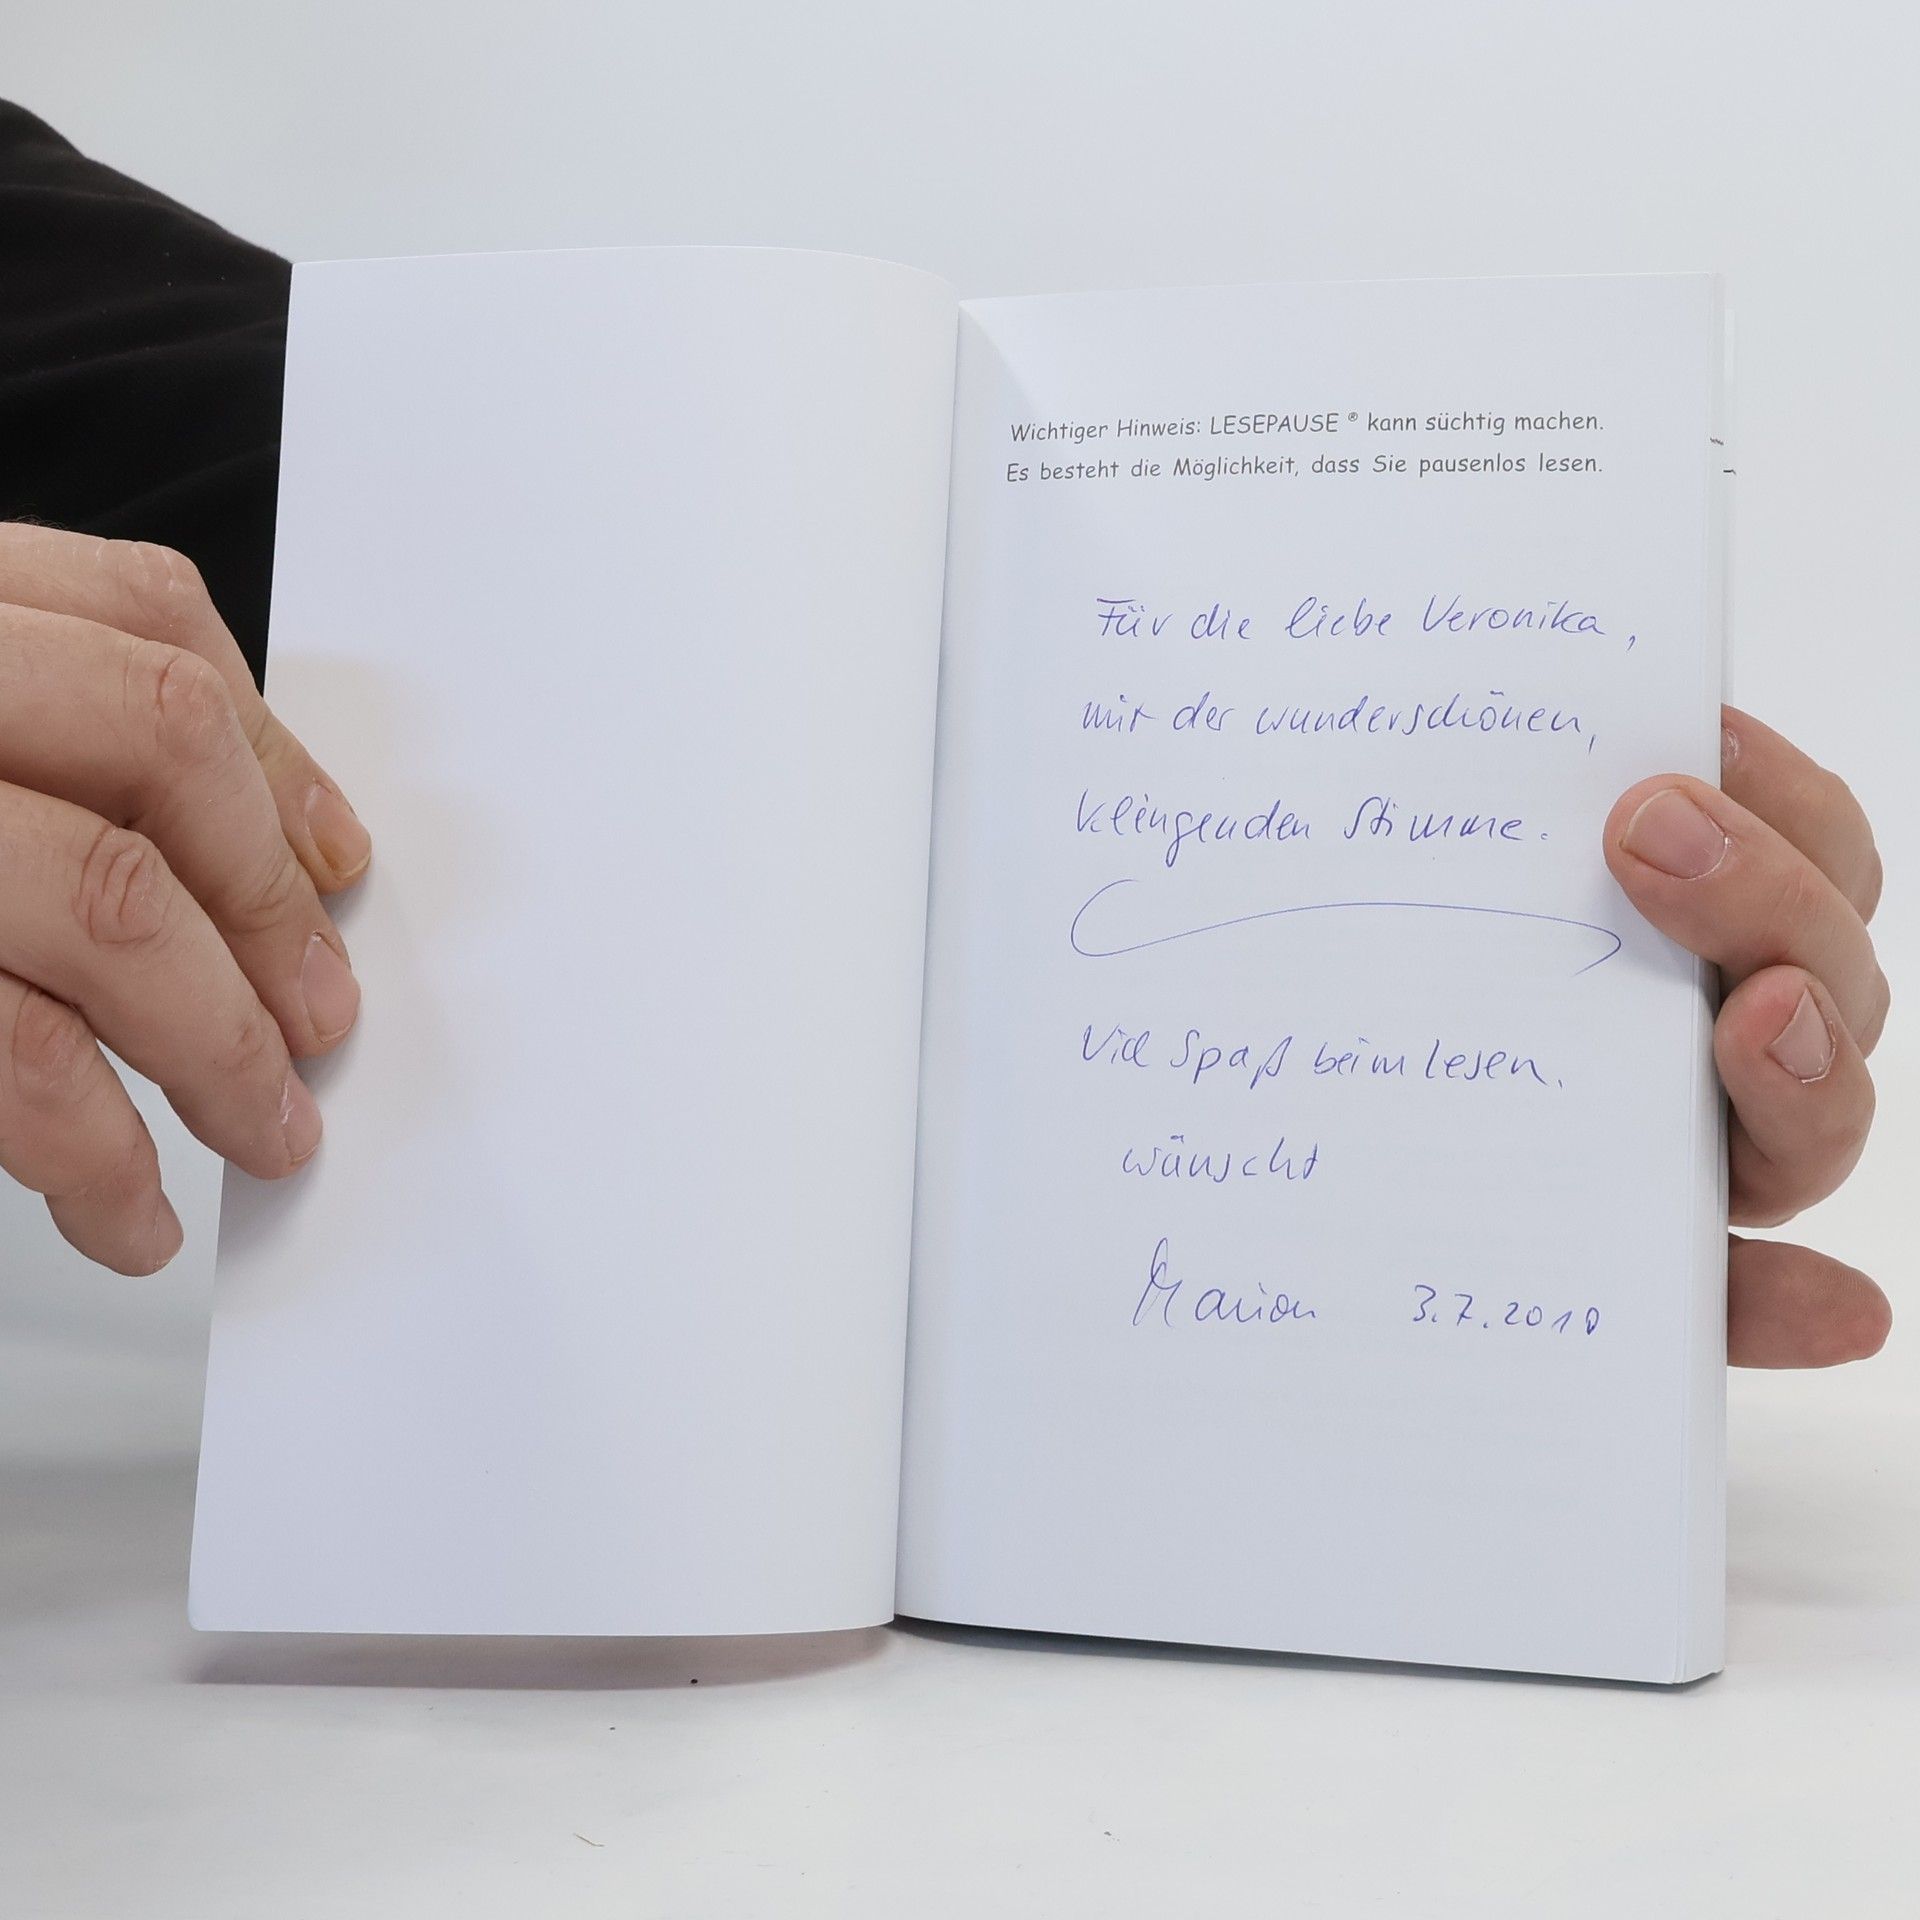 Wichtiger Hinweis: LESEPAUSE ® kann süchtig machen.
Es besteht die Möglichkeit, dass Sie pausenlos lesen.
Für die liebe Veronika,
mit der wunderschönen,
klingenden Stimme.
Viel Spaß beim Lesen.
wünscht
Marion 3.7.2010